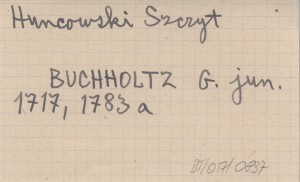 Huncowski Szczyt
BUCHHOLTZ G. jun.
1717, 1783 a